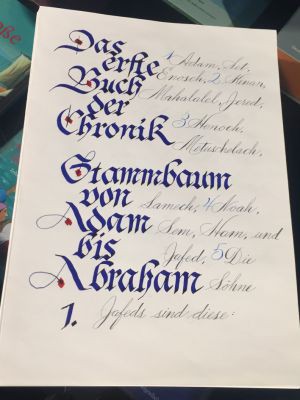 Das
erste
Buch
der
Chronik
Stammbaum
von
Adam
bis
Abraham
1.
1 Adam, Set,
Enosch, 2 Kenan,
Mahalalel, Jered,
3 Henoch,
Metuschelach,
Lamech, 4 Noah,
Sem, Ham, und
Jafed, 5 Die
Söhne
Jafeds sind diese:
oße